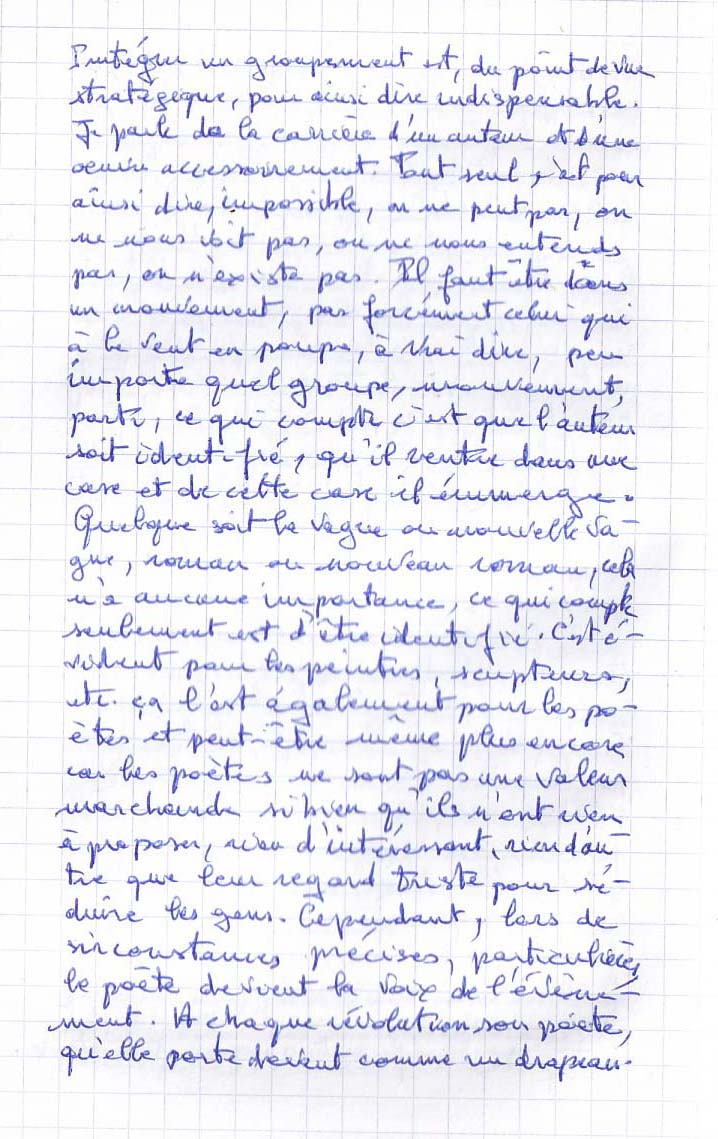 Intégrer un groupement est, du point de vue
stratégique, pour ainsi dire indispensable.
Je parle de la carrière d'un auteur et d'une
oeuvre accessoirement. Tout seul, c'est pour
ainsi dire, impossible, on ne peut pas, on
ne nous voit pas, on ne nous entends
pas, on n'existe pas. Il faut être dans
un mouvement, pas forcément celui qui
à le vent en poupe, à vrai dire, peu
importe quel groupe, mouvement,
parti, ce qui compte c'est que l'auteur
soit identifié, qu'il rentre dans une
case et de cette case il émmerge.
Quelque soit la vague ou nouvelle va-
gue, roman ou nouveau roman, cela
n'a aucune importance, ce qui compte
seulement est d'être identifié. C'est é-
vident pour les peintres, sculpteurs,
etc. ça l'est également pour les po-
ètes et peut-être même plus encore
car les poètes ne sont pas une valeur
marchande si bien qu'ils n'ont rien
à proposer, rien d'intéressant, rien d'au-
tre que leur regard triste pour sé-
duire les gens. Cependant, lors de
circonstances précises, particulières,
le poète devient la voix de l'évène-
ment. A chaque révolution son poète,
qu'elle porte devant comme un drapeau.